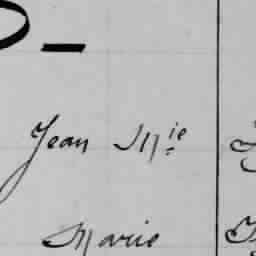 Jean M^ie
Marie